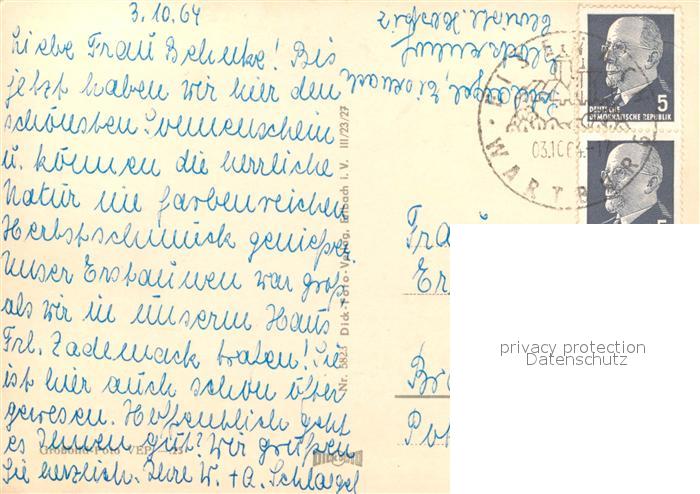 3.10.64
Liebe Frau Behnke! Bis
jetzt haben wir hier den
schönsten Sonnenschein
u. können die herrliche
Natur im farbenreichen
Herbstschmuck genießen.
Unser Erstaunen war groß,
als wir in unserm Haus
Frl. Zademack trafen! Sie
ist hier auch schon öfter
gewesen. Hoffentlich geht
es Ihnen gut? Wir grüßen
Sie herzlich. Ihre W. + A. Schlägel
Nr. 5823 Dick-Foto-Verlag, i. V. III/23/27
DEUTSCHE
DEMOKRATISCHE REPUBLIK
5
EISENACH
03.10.64.-17
WARTBURG
Frau
Er
privacy protection
Datenschutz